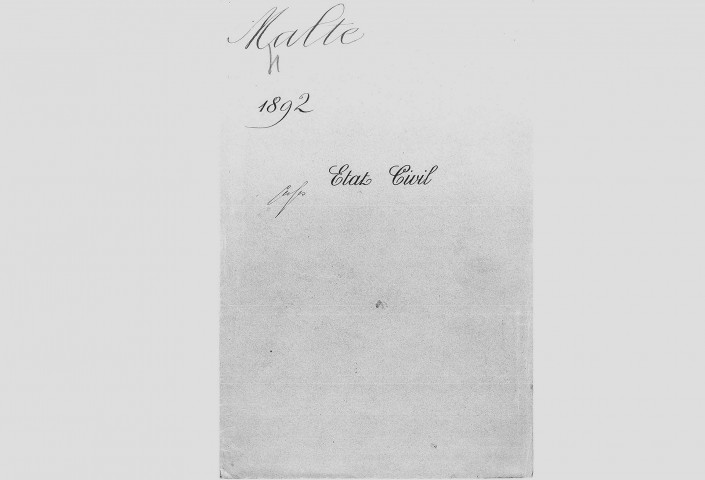 Malte
1892
Etat Civil